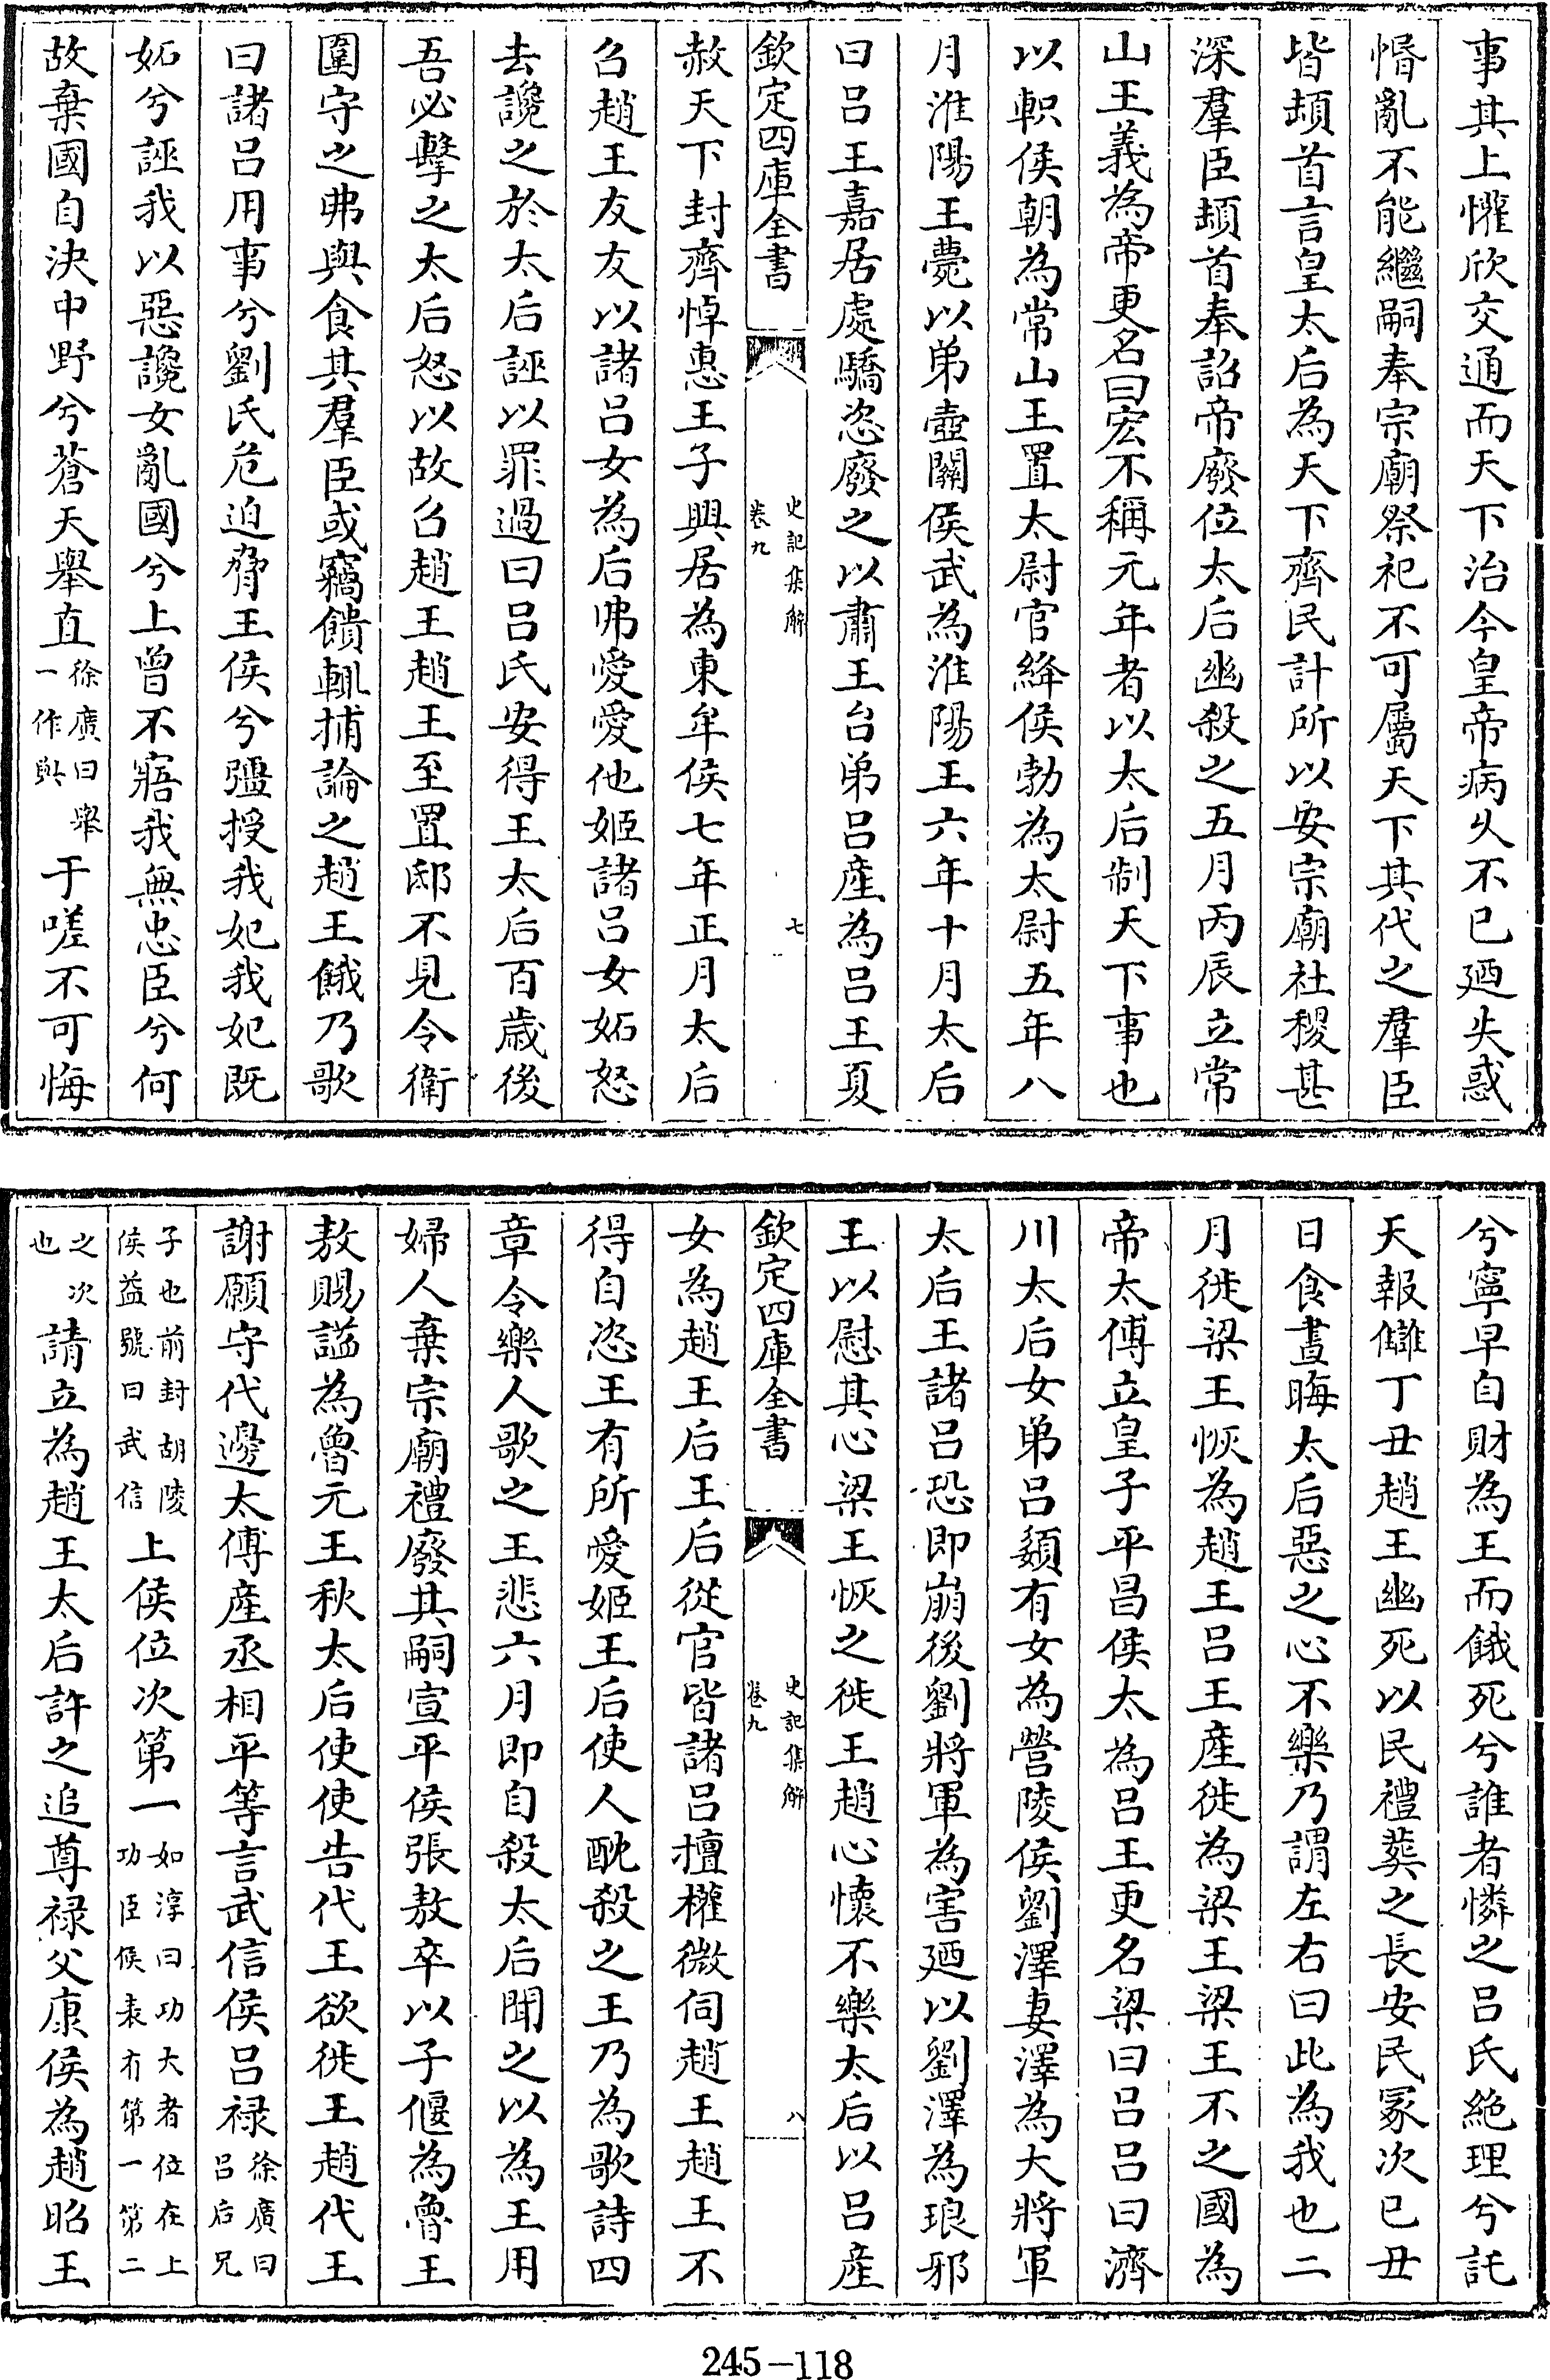 事其上懽欣交通而天下治今皇帝病乆不已廼失惑
惛亂不能繼嗣奉宗廟祭祀不可屬天下其代之羣臣
皆頓首言皇太后為天下齊民計所以安宗廟社稷甚
深羣臣頓首奉詔帝廢位太后幽殺之五月丙辰立常
山王義為帝更名曰宏不稱元年者以太后制天下事也
以軹侯朝為常山王置太尉官絳侯勃為太尉五年八
月淮陽王薨以弟壺關侯武為淮陽王六年十月太后
曰吕王嘉居處驕恣廢之以肅王台弟吕產為吕王夏
欽定四庫全書
史記集解
卷九
七
赦天下封齊悼惠王子興居為東牟侯七年正月太后
召趙王友友以諸吕女為后弗愛愛他姬諸吕女妬怒
去讒之於太后誣以罪過曰吕氏安得王太后百歲後
吾必擊之太后怒以故召趙王趙王至置邸不見令衛
圍守之弗與食其羣臣或竊饋輒捕論之趙王餓乃歌
曰諸吕用事兮劉氏危迫脅王侯兮彊授我妃我妃既
妬兮誣我以惡讒女亂國兮上曾不寤我無忠臣兮何
故棄國自決中野兮蒼天舉直徐廣曰舉一作與于嗟不可悔
兮寧早自財為王而餓死兮誰者憐之吕氏絶理兮託
天報讎丁丑趙王幽死以民禮葬之長安民冢次已丑
日食晝晦太后惡之心不樂乃謂左右曰此為我也二
月徙梁王恢為趙王吕王產徙為梁王梁王不之國為
帝太傅立皇子平昌侯太為吕王更名梁曰吕吕曰濟
川太后女弟吕嬃有女為營陵侯劉澤妻澤為大將軍
太后王諸吕恐即崩後劉將軍為害廼以劉澤為琅邪
王以慰其心梁王恢之徙王趙心懷不樂太后以吕產
欽定四庫全書
史記集解
卷九
八
女為趙王后王后從官皆諸吕擅權微伺趙王趙王不
得自恣王有所愛姬王后使人酖殺之王乃為歌詩四
章令樂人歌之王悲六月即自殺太后聞之以為王用
婦人棄宗廟禮廢其嗣宣平侯張敖卒以子偃為魯王
敖賜諡為魯元王秋太后使使告代王欲徙王趙代王
謝願守代邊太傅產丞相平等言武信侯吕禄徐廣曰吕后兄
子也前封胡陵侯益號曰武信上侯位次第一如淳曰功大者位在上功臣侯表有第一第二
之次也請立為趙王太后許之追尊禄父康侯為趙昭王
245-118